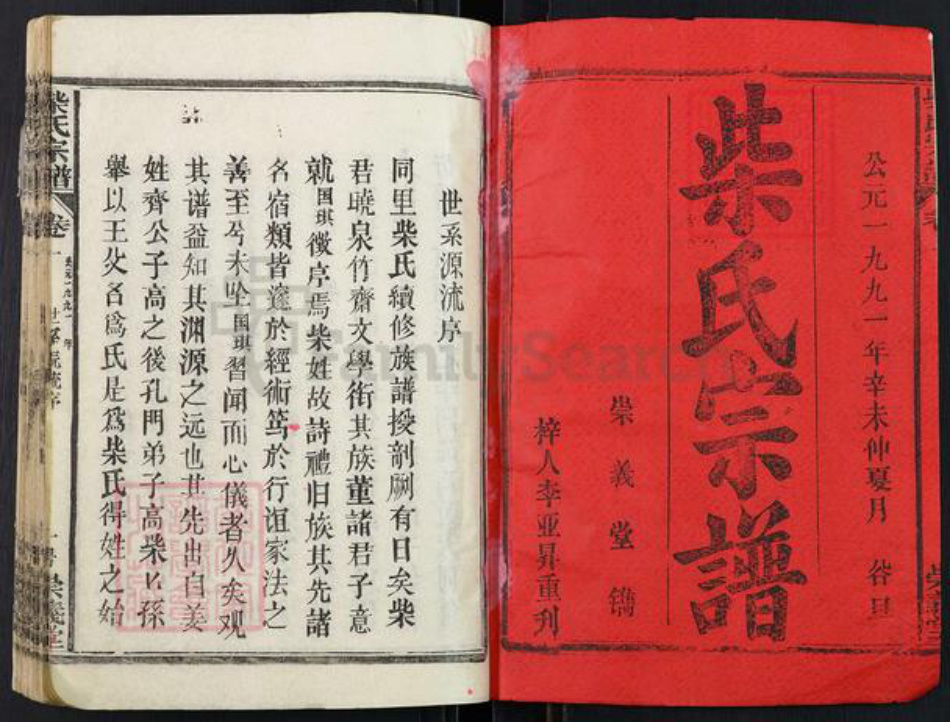 公元一九九一年辛未仲夏月 谷旦
柴氏宗譜
崇義堂鐫
梓人李亚昇重刊
世系源流序
同里柴氏續修族譜授剞劂有日矣柴
君曉泉竹齋文學術其族董諸君子意
就国琪徵序焉柴姓故詩禮旧族其先諸
名宿類皆邃於經術笃於行谊家法之
善至兮未坠国琪習闻而心儀者久矣观
其谱益知其渊源之远也其先出自姜
姓齊公子高之後孔門弟子高柴以孫
舉以王父名爲氏是爲柴氏得姓之始
柴氏宗譜
卷一
公元一九九一年
世系源流序
崇義堂
FamilySearch